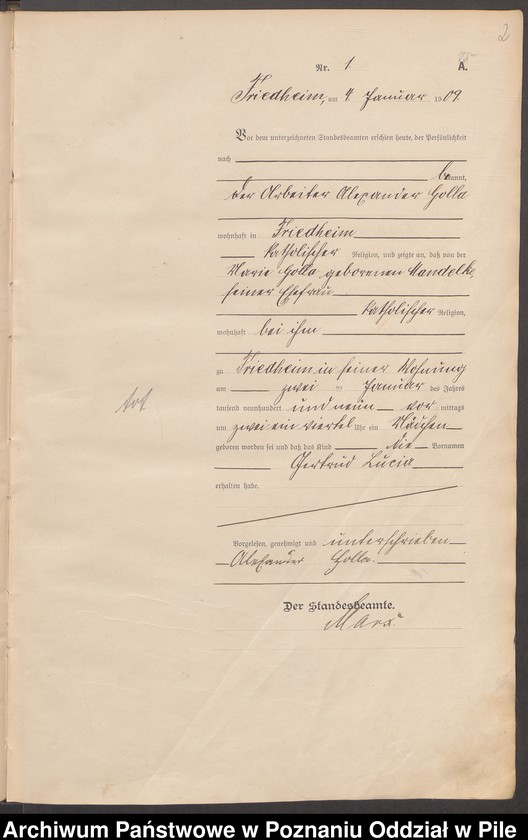 2
Nr. 1.
A.
Friedheim, am 4. Januar 1909.
Vor dem unterzeichneten Standesbeamten erschien heute, der Persönlichkeit
nach
bekannt,
der Arbeiter Alexander Golla
wohnhaft in Friedheim
katholischer Religion, und zeigte an, daß von der
Marie Golla geborenen Mandelke,
seiner Ehefrau
katholischer Religion,
wohnhaft bei ihm
zu Friedheim in seiner Wohnung
am zwei ten Januar des Jahres
tausend neunhundert und neun vor mittags
um zwei ein viertel Uhr ein Mädchen
geboren worden sei und daß das Kind die Vornamen
Gertrud Lucia
erhalten habe.
tot
Vorgelesen, genehmigt und unterschrieben
Alexander Golla.
Der Standesbeamte.
Marx
Archiwum Państwowe w Poznaniu Oddział w Pile